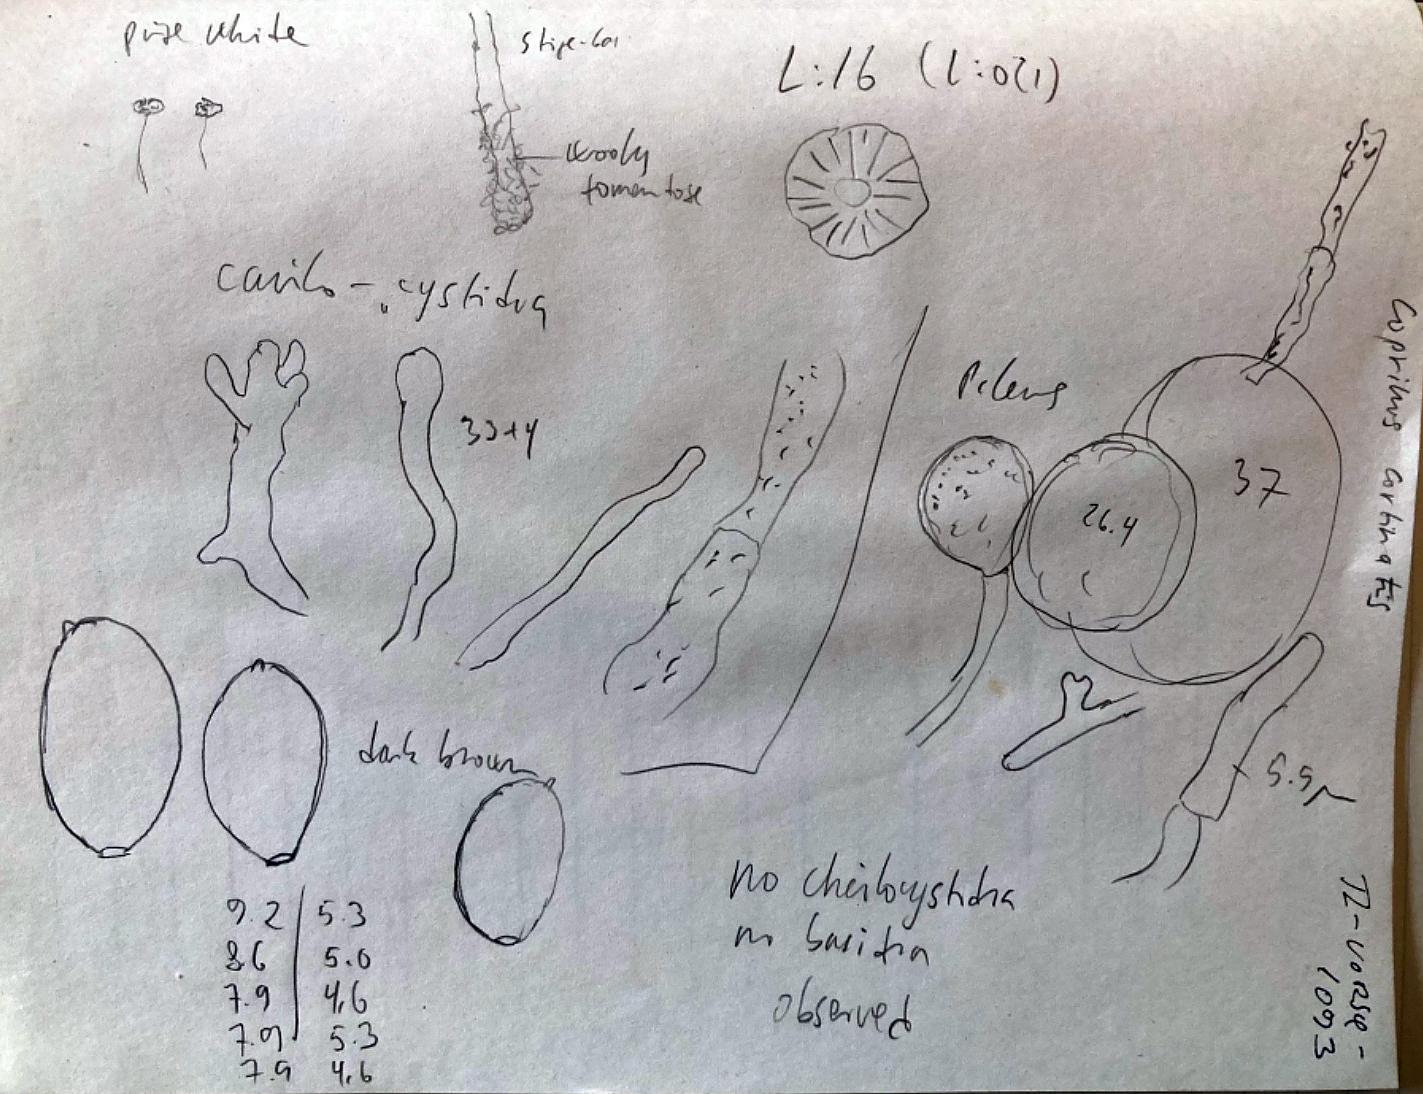 pure white
stipe-
wooly
tomentose
L:16 (l:0(1)
caulo-cystidia
33+4
Pileus
26.4
37
5.5µ
dark brown
9.2 | 5.3
8.6 | 5.0
7.9 | 4,6
7.9 | 5.3
7.9 | 4,6
no cheilocystidia
no basidia
observed
Coprinus cortinatus
1093